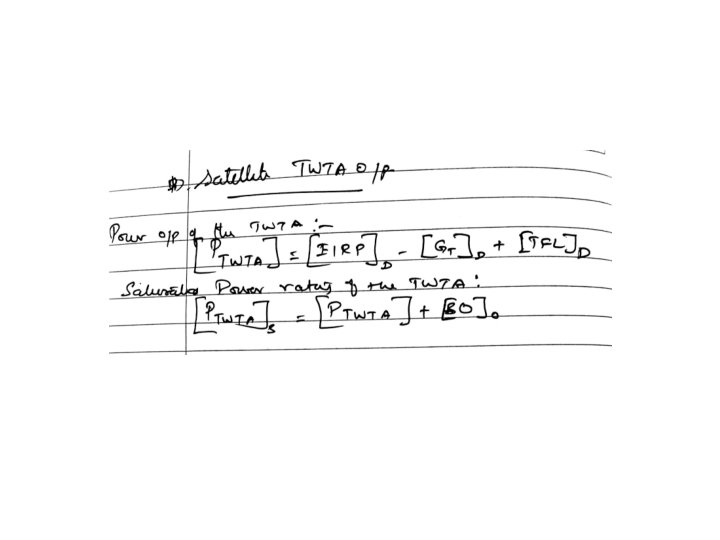 Satellite TWTA O/P
Power o/p of the TWTA :-
[P_TWTA] = [EIRP]_D - [G_T]_D + [TFL]_D
Saturated Power rating of the TWTA :
[P_TWTA]_S = [P_TWTA] + [BO]_o